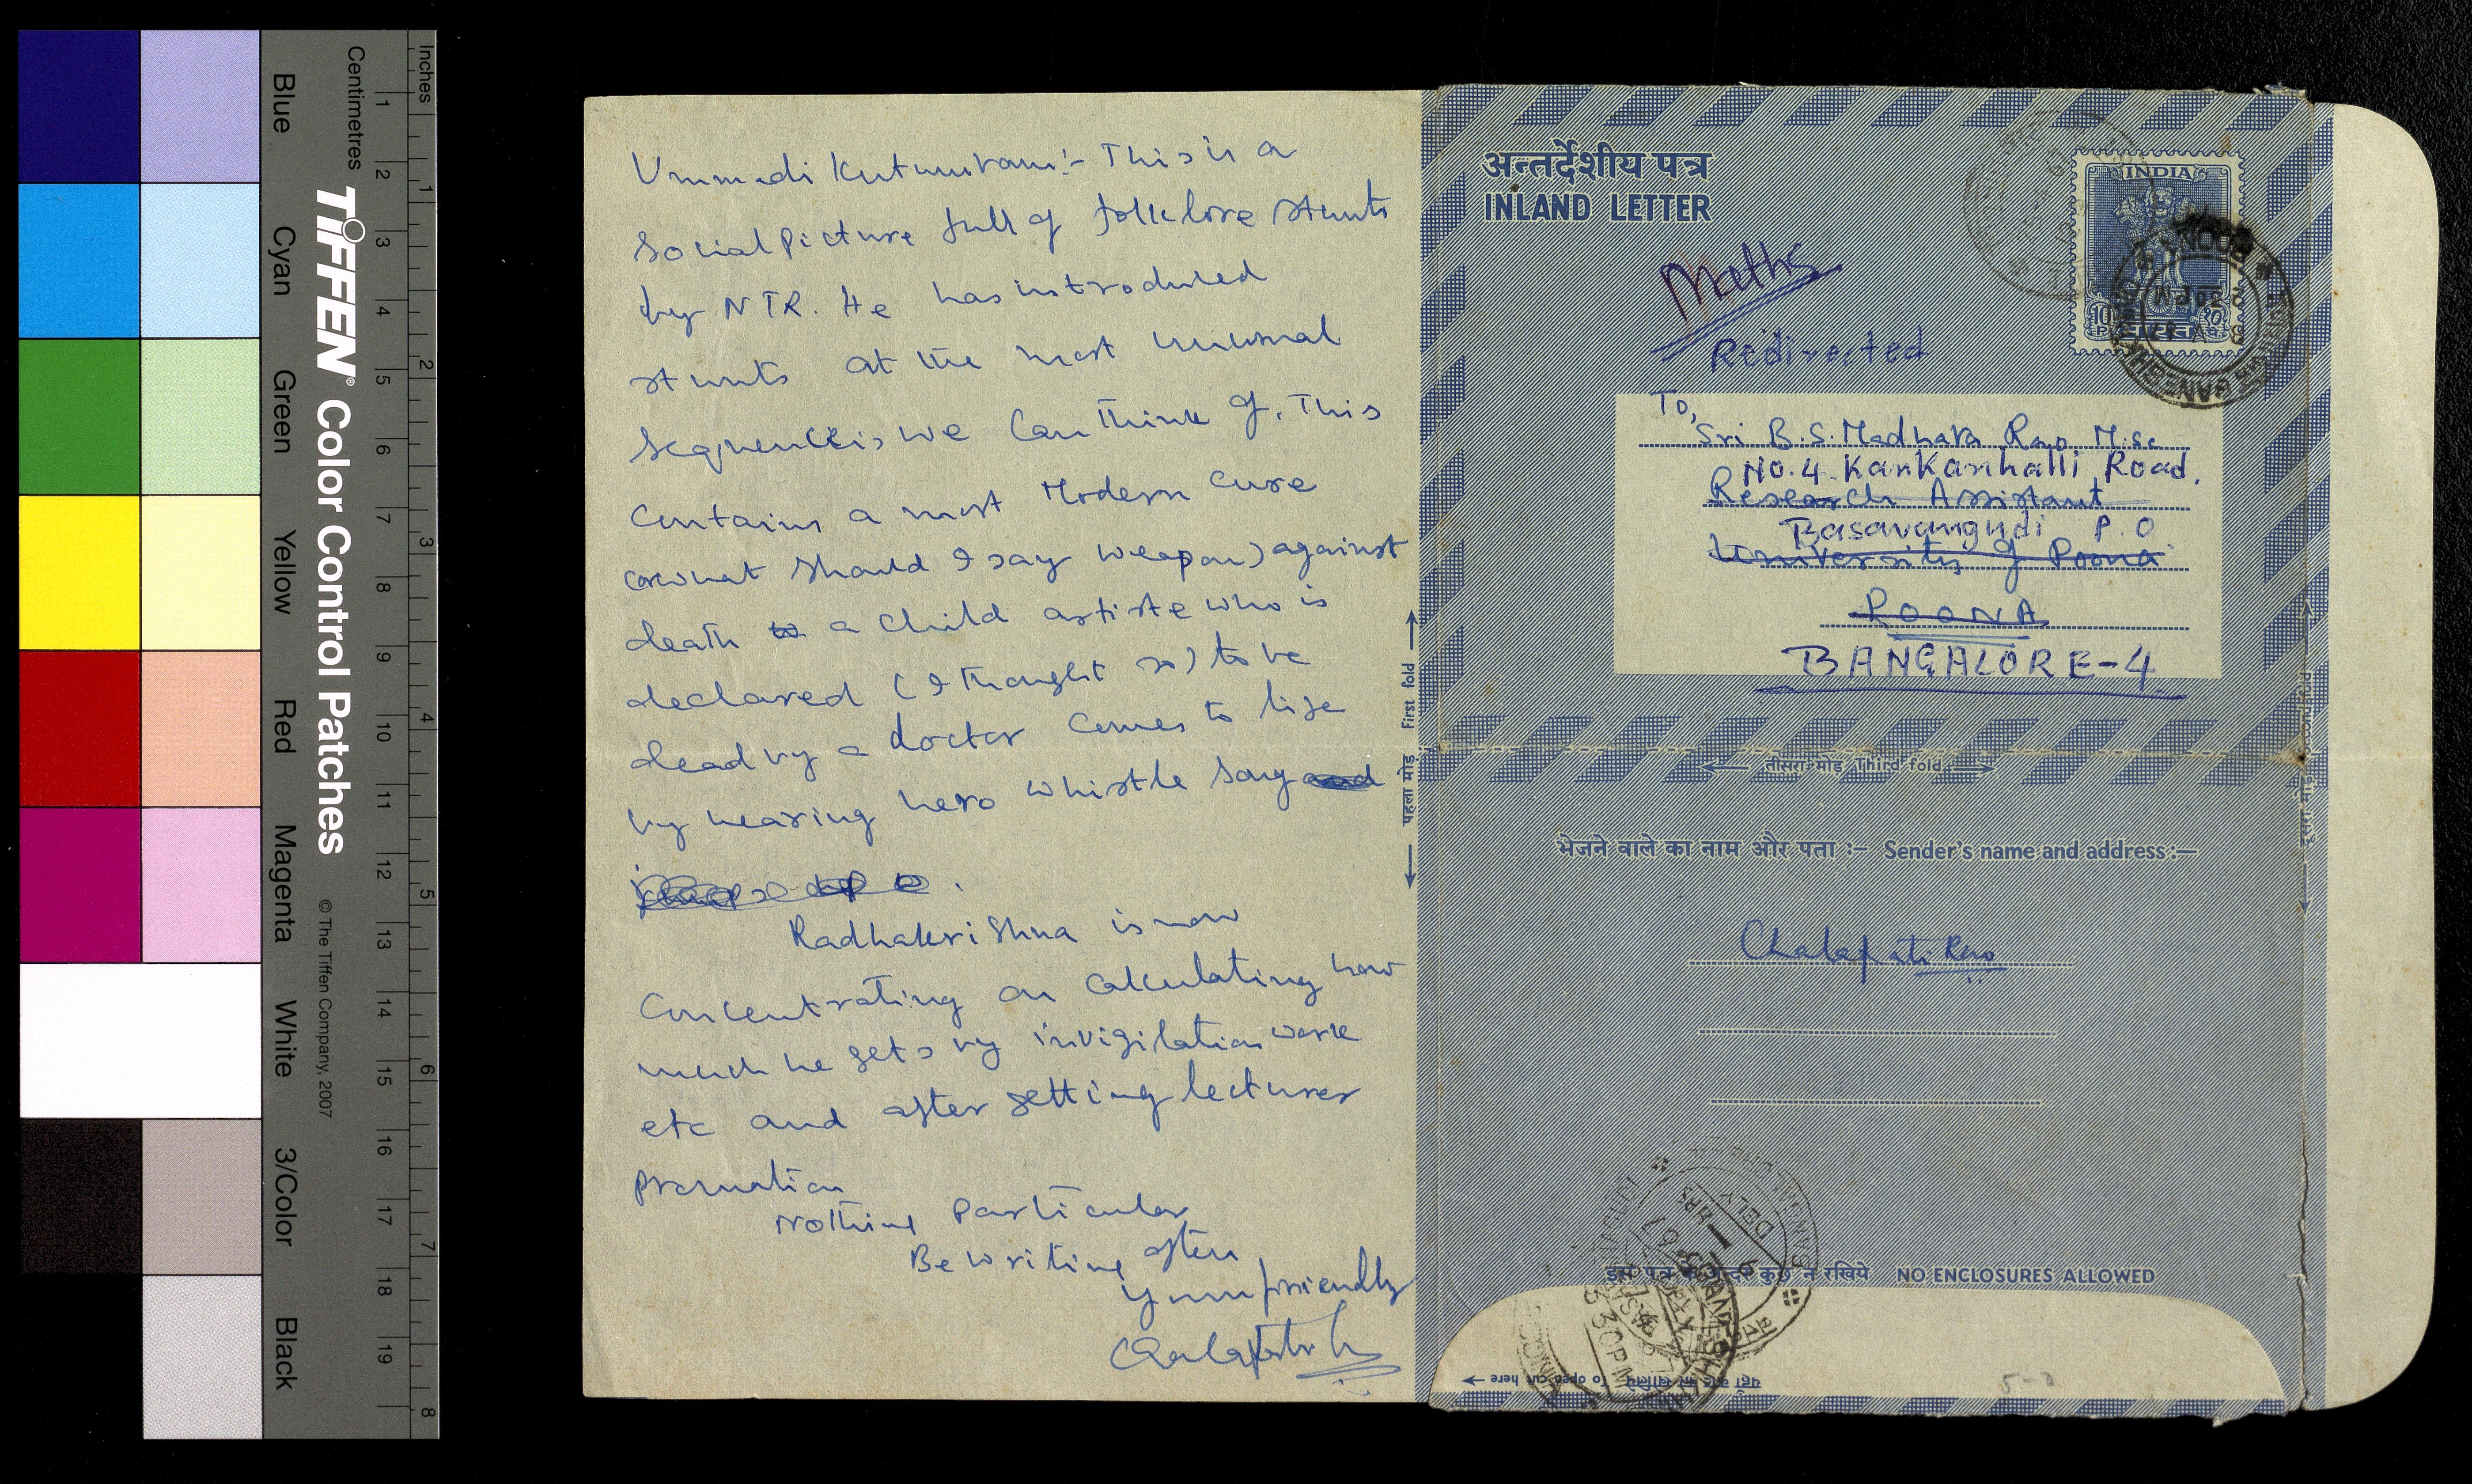 Inches
Centimetres
Blue
Cyan
Green
Yellow
Red
Magenta
White
3/Color
Black
TIFFEN® Color Control Patches
© The Tiffen Company, 2007
1 2 3 4 5 6 7 8 9 10 11 12 13 14 15 16 17 18 19
1 2 3 4 5 6 7 8
Ummadi Kutumbam:- This is a
Social Picture full of folklore stunts
by NTR. He has introduced
stunts at the most unusual
sequences we can think of. This
contains a most Modern cure
(or what should I say weapon) against
death a child artiste who is
declared (I thought so) to be
dead by a doctor comes to life
by hearing hero whistle song
Radhakrishna is now
concentrating on calculating how
much he gets by invigilation work
etc and after getting lecturer
promotion
Nothing Particular
Be writing often
Your friendly
पहला मोड़ First fold
अन्तर्देशीय पत्र
INLAND LETTER
INDIA
भारत
Maths
Redirected
To,
Sri B.S. Madhava Rao M.Sc
No. 4. Kankanhalli Road,
Research Assistant
Basavangudi P.O
University of Poona
POONA
BANGALORE-4
तीसरा मोड़ Third fold
दूसरा मोड़ Second fold
भेजने वाले का नाम और पता :— Sender's name and address:—
Chalapati Rao
DELY
HRS
5 30 PM
इस पत्र के अन्दर कुछ न रखिये NO ENCLOSURES ALLOWED
To open cut here